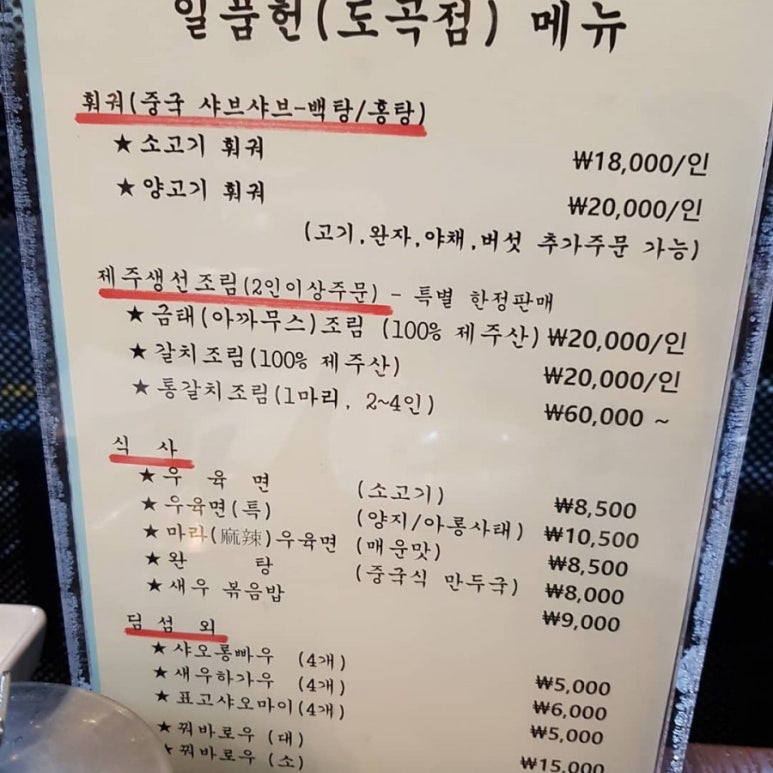 일품헌(도곡점) 메뉴
훠궈(중국 샤브샤브-백탕/홍탕)
★ 소고기 훠궈 ₩18,000/인
★ 양고기 훠궈 ₩20,000/인
(고기,완자,야채,버섯 추가주문 가능)
제주생선조림(2인이상주문) - 특별 한정판매
★ 금태(아까무스)조림 (100% 제주산) ₩20,000/인
★ 갈치조림(100% 제주산) ₩20,000/인
★ 통갈치조림(1마리, 2~4인) ₩60,000 ~
식 사
★ 우 육 면 (소고기) ₩8,500
★ 우육면(특) (양지/아롱사태) ₩10,500
★ 마라(麻辣)우육면 (매운맛) ₩8,500
★ 완 탕 (중국식 만두국) ₩8,000
★ 새우 볶음밥 ₩9,000
딤 섬 외
★ 샤오롱빠우 (4개) ₩5,000
★ 새우하가우 (4개) ₩6,000
★ 표고샤오마이(4개) ₩5,000
★ 꿔바로우 (대) ₩15,000
★ 꿔바로우 (소)